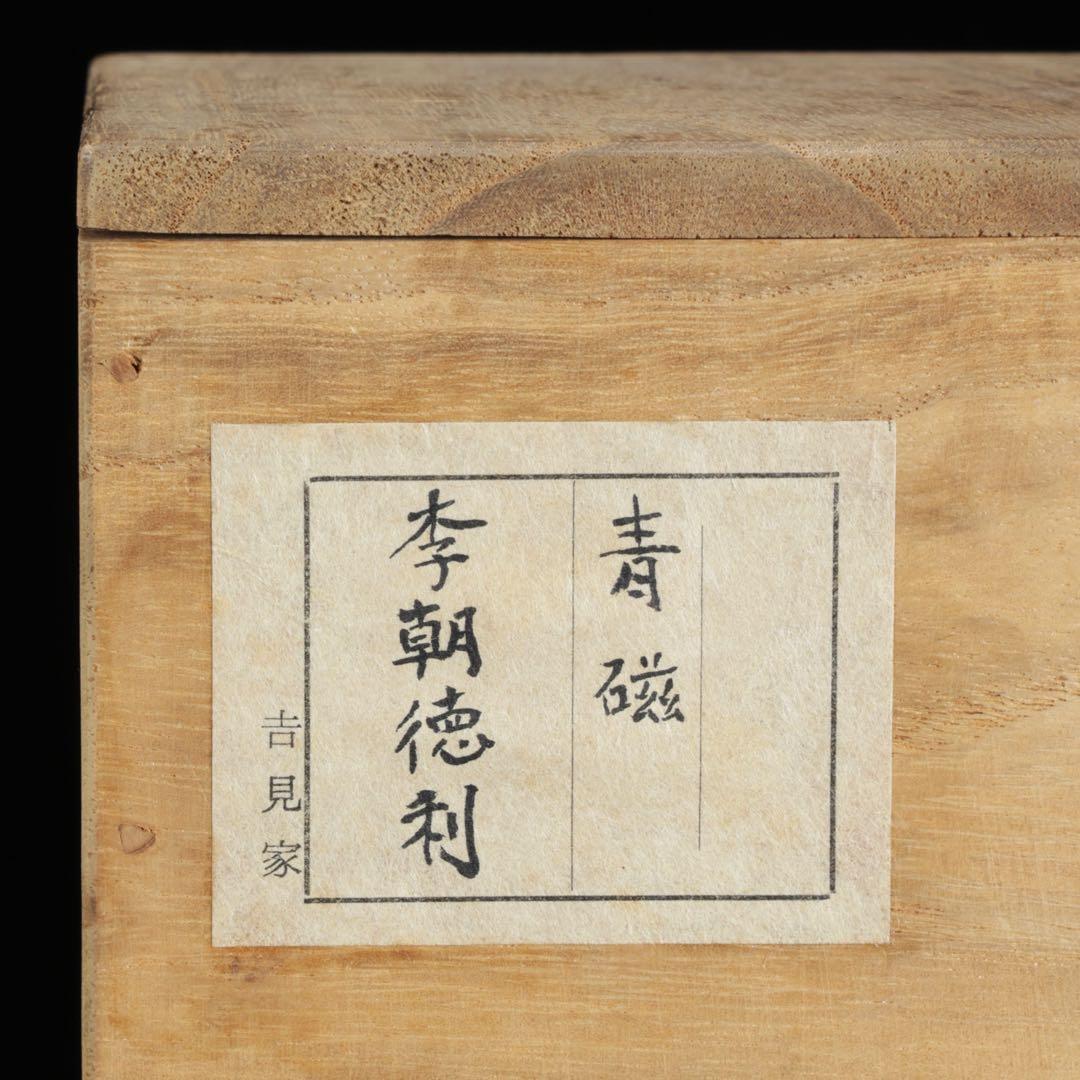 青磁
李朝徳利
吉見家